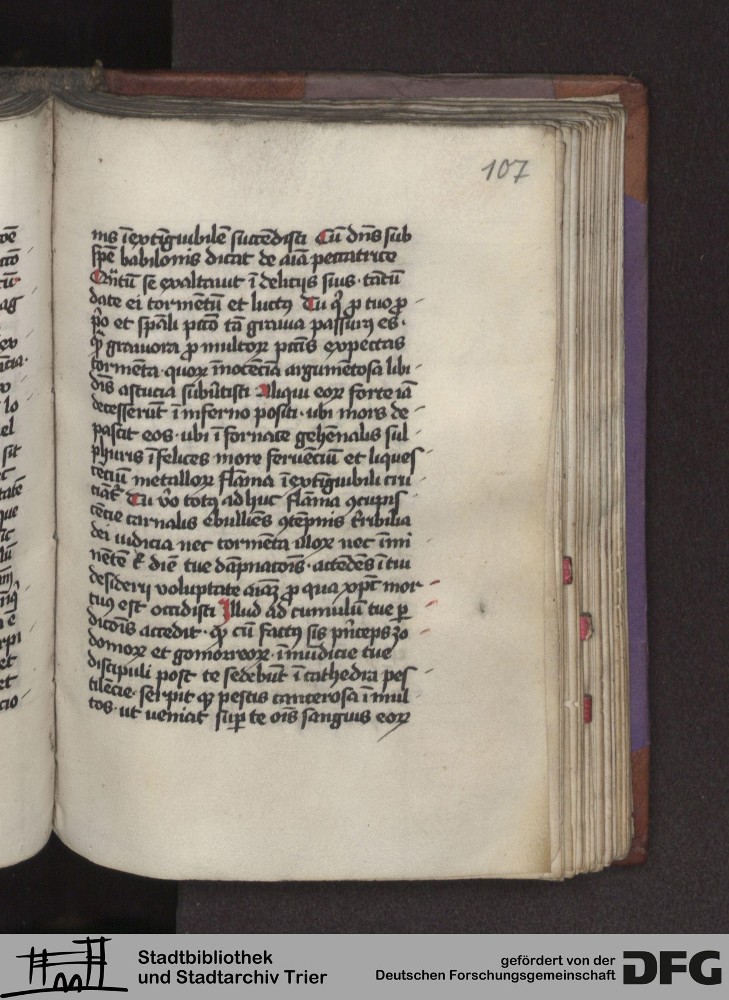 107
nis īextīguibilē succēdisti Cū dn̄s sub
spē babilonis dicat de aīa peccatrice
Qn̄tū se exaltauit ī delicijs suis · tātū
date ei tormētū et luctꝰ Tu qͥ ꝓ tuo ꝓ
pͥo et spāli pctō tā grauia passurꝰ es ·
qͥ grauiora ꝓ multoꝝ pctīs expectas
tormēta · quoꝝ īnocēcia argumētosa libi
dīs astucia subūtisti Aliqui eoꝝ forte iā
decesserūt ī inferno positi · ubi mors de
pascit eos · ubi ī fornace gehēnalis sul
phuris īfelices more feruēciū et liques
cēciū metalloꝝ flāma īextīguibili cru
ciāt᷑ Tu v̊o totꝰ ad huc flāma ꝯcupis
cēcie carnalis ebulliēs ꝯtēpnis t᷑ribilia
dei iudicia nec tormēta illoꝝ nec īmi
nētē t᷑ diē tue dāpnatōis · accedēs ī tui
desiderij voluptate aīaꝫ ꝓ qua xp̄c mor
tuꝰ est occidisti Illud ad cumulū tue ꝑ
dicōis accedit · qͥ cū factꝰ sis pͥnceps zo
domoꝝ et gomorreoꝝ · īmūdicie tue
discipuli post te sedebūt ī cathedra pes
tilēcie · serpit qͥ pestis cancerosa ī mul
tos · ut ueniat suꝑ te oīs sanguis eoꝝ
Stadtbibliothek
und Stadtarchiv Trier
gefördert von der
Deutschen Forschungsgemeinschaft
DFG